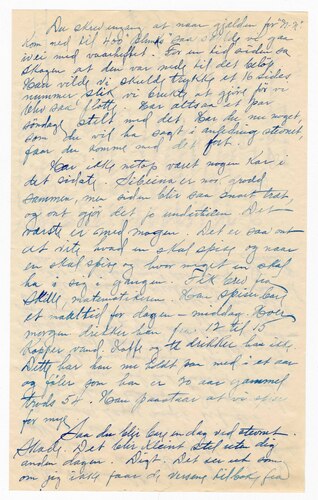 Du skrev engang at naar gjelden for "N.N."
kom ned til 400 skulde vi gaa
ivei med vaarheftet. For en tid siden sa
Skagen at den var nede til det beløp.
Han vilde vi skulde trykke et 16 siders
nummer slik vi brukte at gjøre før vi
blev saa flotte. Har altsaa et par
søndage stelt med det. Har du nu noget,
som du vil ha sagt i anledning stevnet
faar du komme med det fort.
Har ikke netop været nogen kar i
det sidste. Sibeina er nok grodd
sammen, men siden blir saa snart træt,
og ont gjør det jo undertiden. Det
værste er med magen. Det er saa ont
at vite, hvad en skal spise og naar
en skal spise og hvor meget en skal
ha i sig i gangen. Fik brev fra
matematikeren. Han spiser bare
et maaltid for dagen – middag. Hver
morgen drikker han fra 12 til 15
kopper vand. Kaffe og te drikker han ikke.
Dette har han nu holdt paa med i et aar
og føler som han er 20 aar gammel
trods 54. Han paastaar at vi spiser
for meget.
Saa du blir bare en dag ved stevnet.
Skade. Det blir kleint stel uten dig
anden dagen. Digt. Det ser ut som
om jeg ikke faar de versene tilbake fra